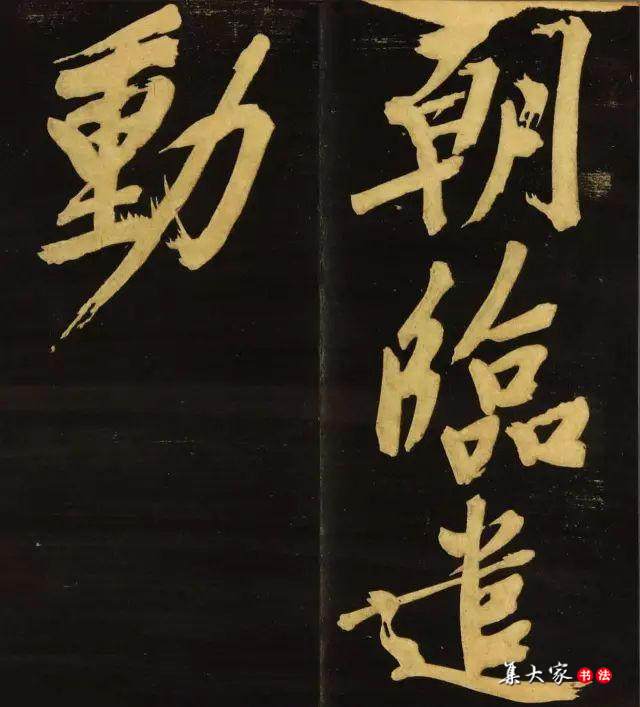 朝臨遣
動
集大家书法